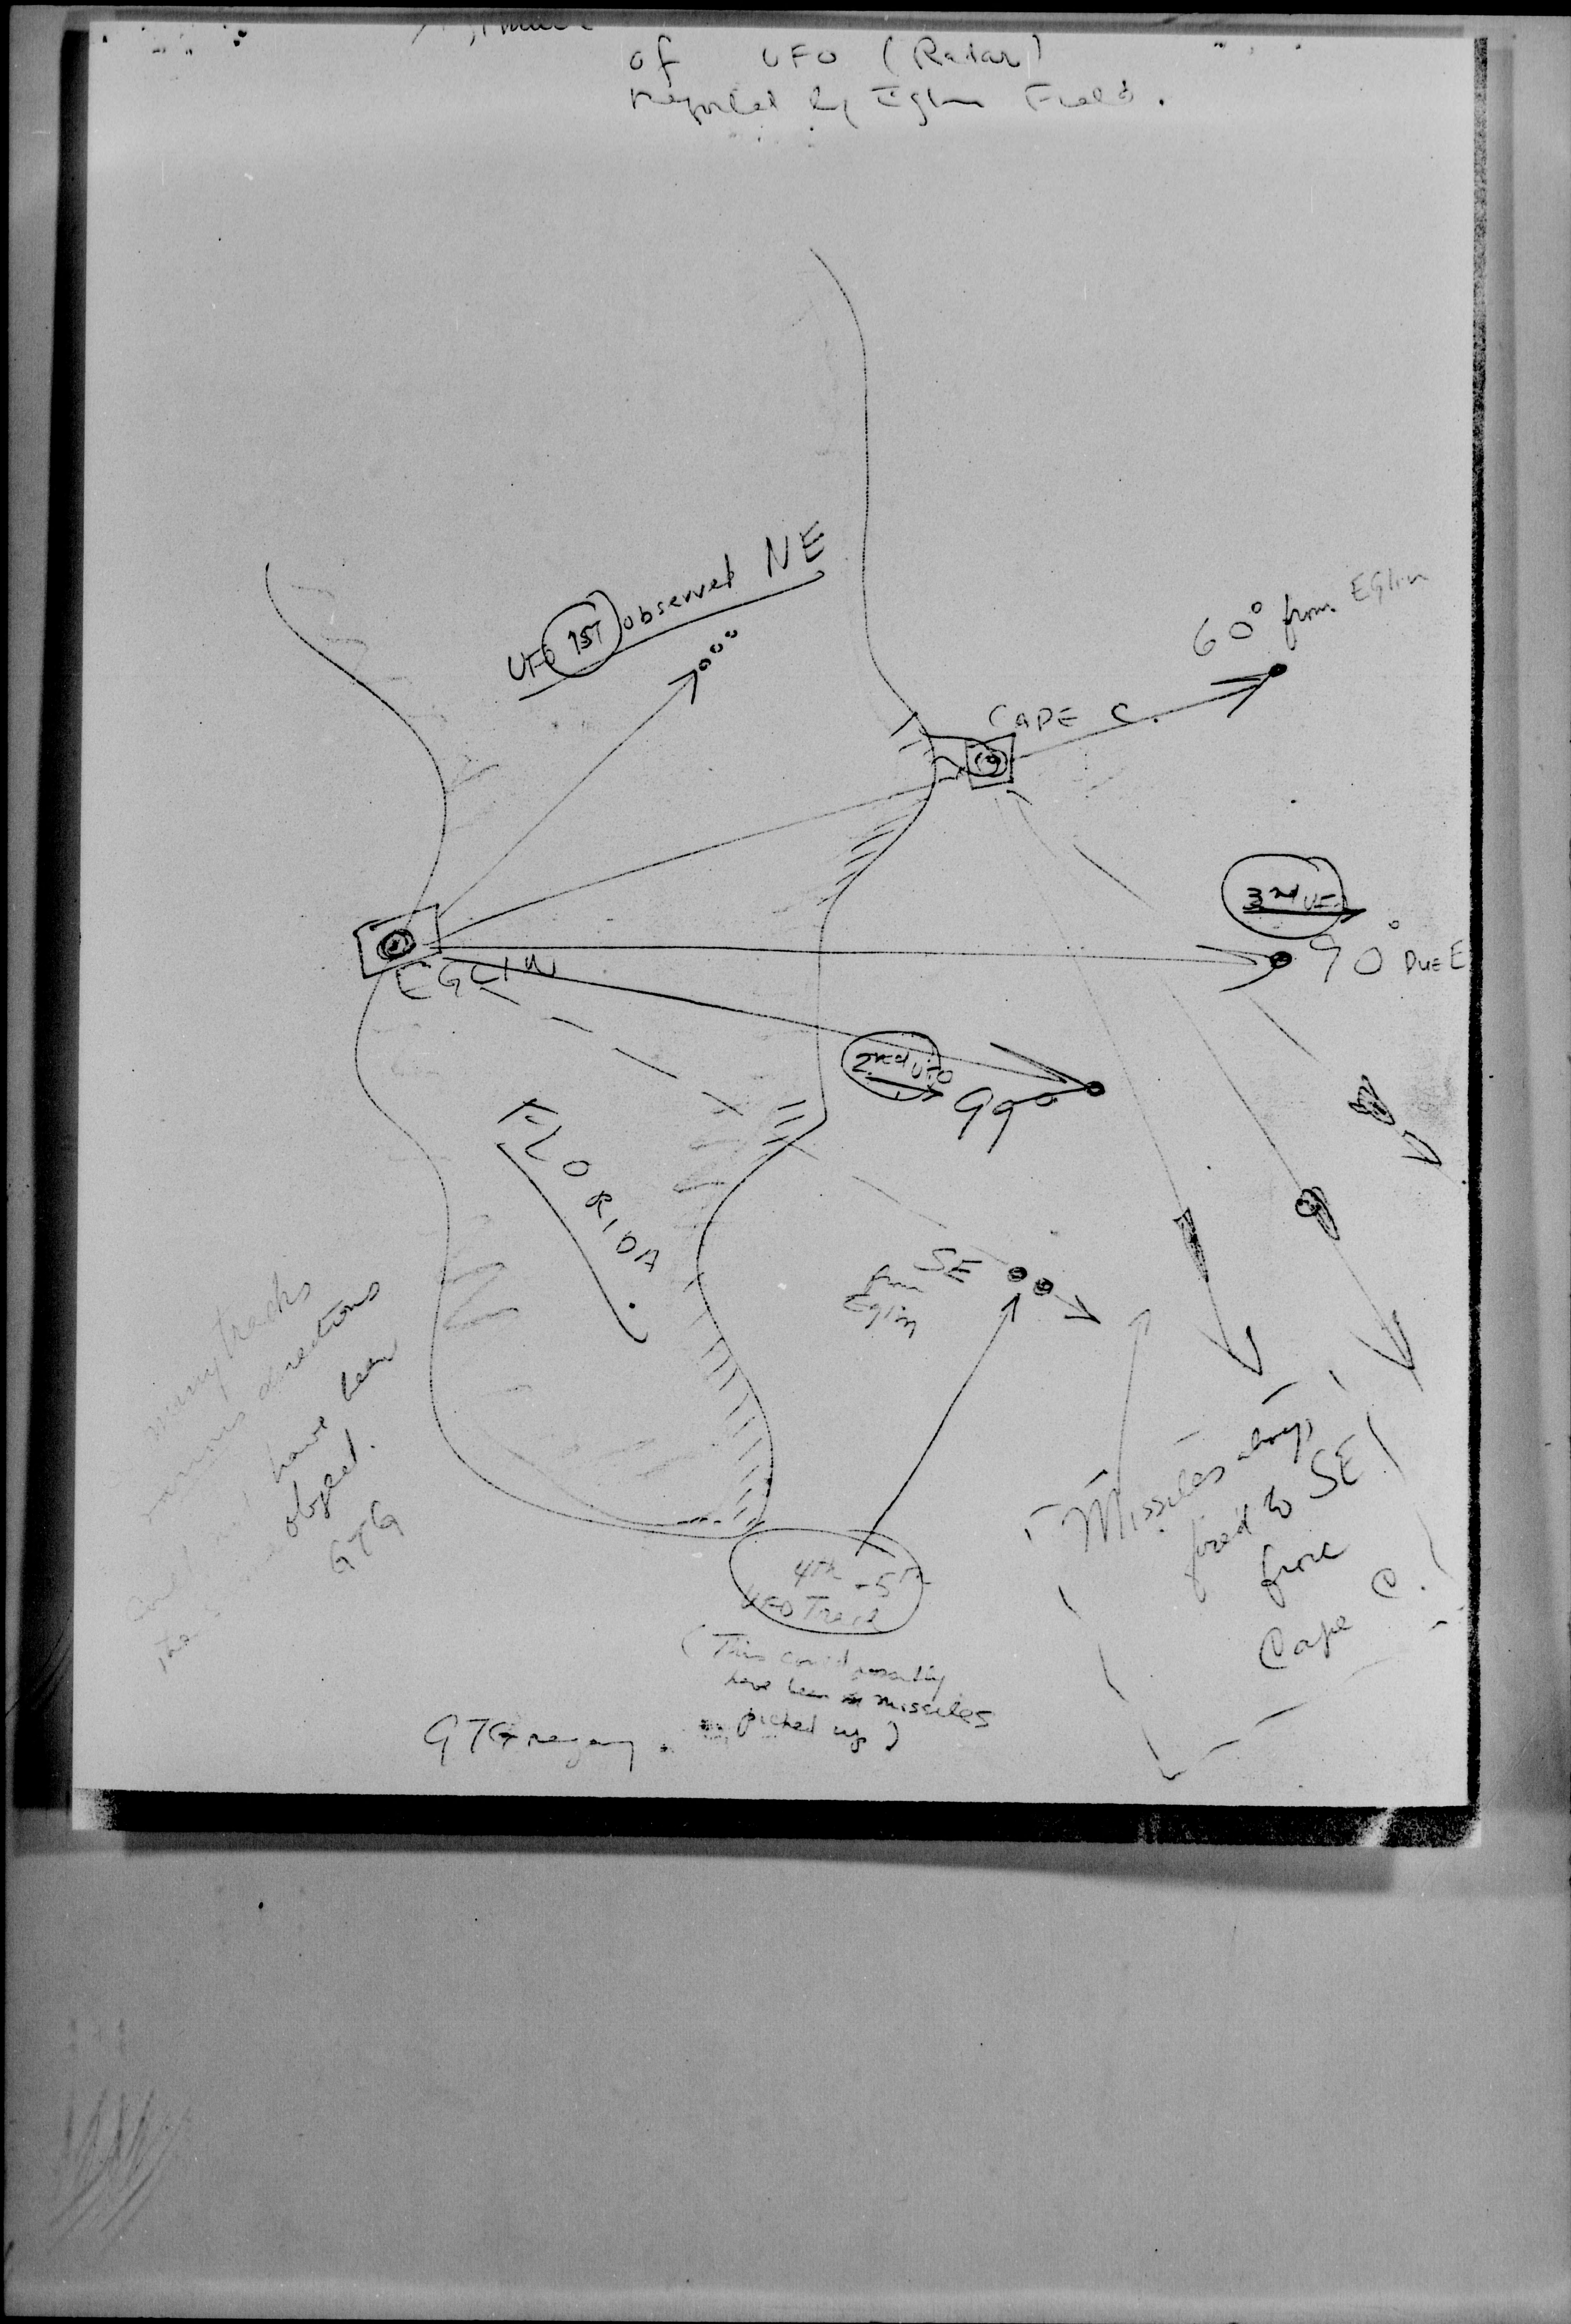 of UFO (Radar)
reported by Eglin Field.
UFO 1ST observed NE
60° from Eglin
CAPE C.
3rd UFO
90° Due E
EGLIN
2nd UFO
99°
FLORIDA
SE
from
Eglin
many tracks
various directions
have been
object.
GTG
Missiles always
fired to SE
from
Cape C.
4th - 5th
UFO Track
(This could possibly
have been missiles
picked up)
GTGregory.